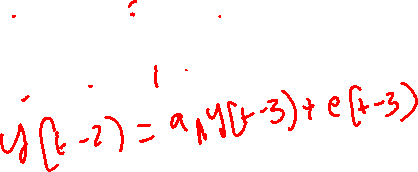 y(t-2) = a₁y(t-3) + e(t-3)